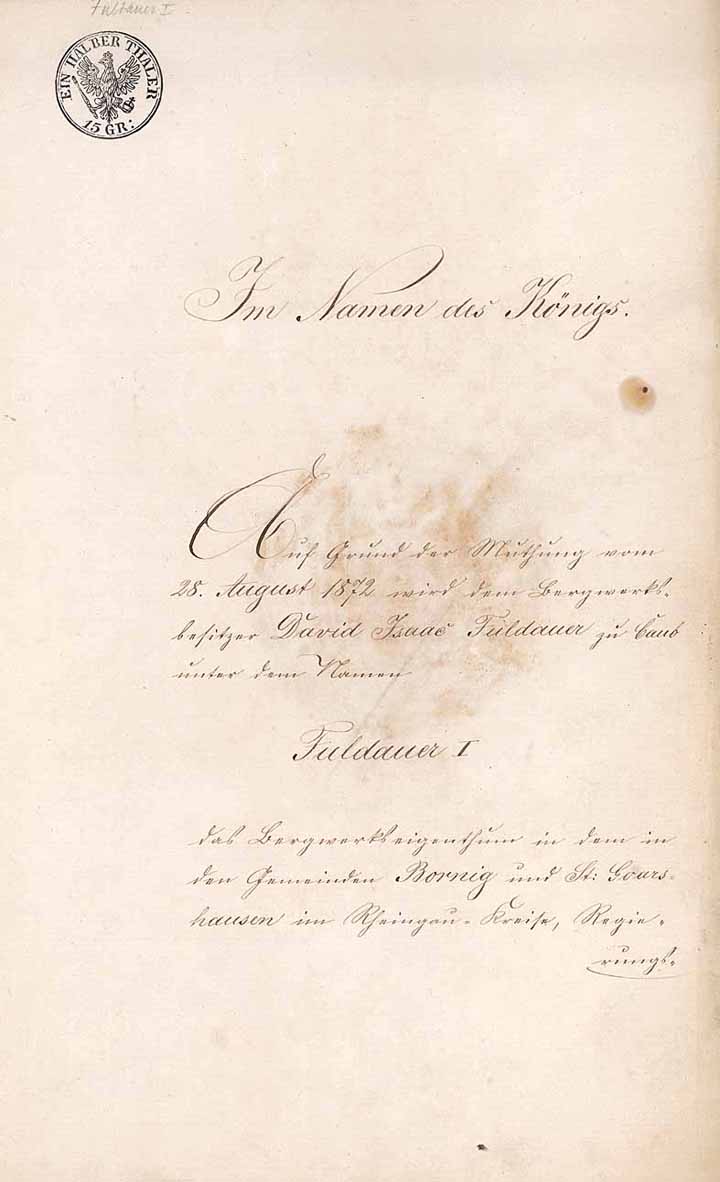 Fuldauer I.
EIN HALBER THALER
15 GR:
Im Namen des Königs.
Auf Grund der Muthung vom
28. August 1872 wird dem Bergwerks-
besitzer David Isaac Fuldauer zu Caub
unter dem Namen
Fuldauer I
das Bergwerkseigenthum in dem in
den Gemeinden Bornig und St: Goars-
hausen im Rheingau-Kreise, Regie-
rungs-